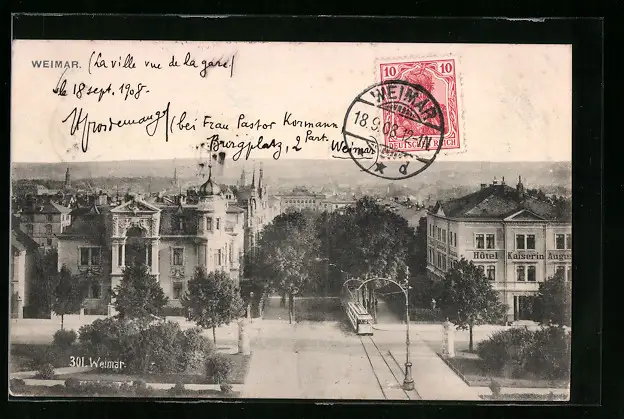 WEIMAR. (La ville vue de la gare)
le 18 sept. 1908.
(bei Frau Pastor Kormann
Burgplatz, 2 Part.
Weimar
10 10
DEUTSCHES REICH
WEIMAR
18.9.08.12-1N
Hôtel Kaiserin Augus
301. Weimar.